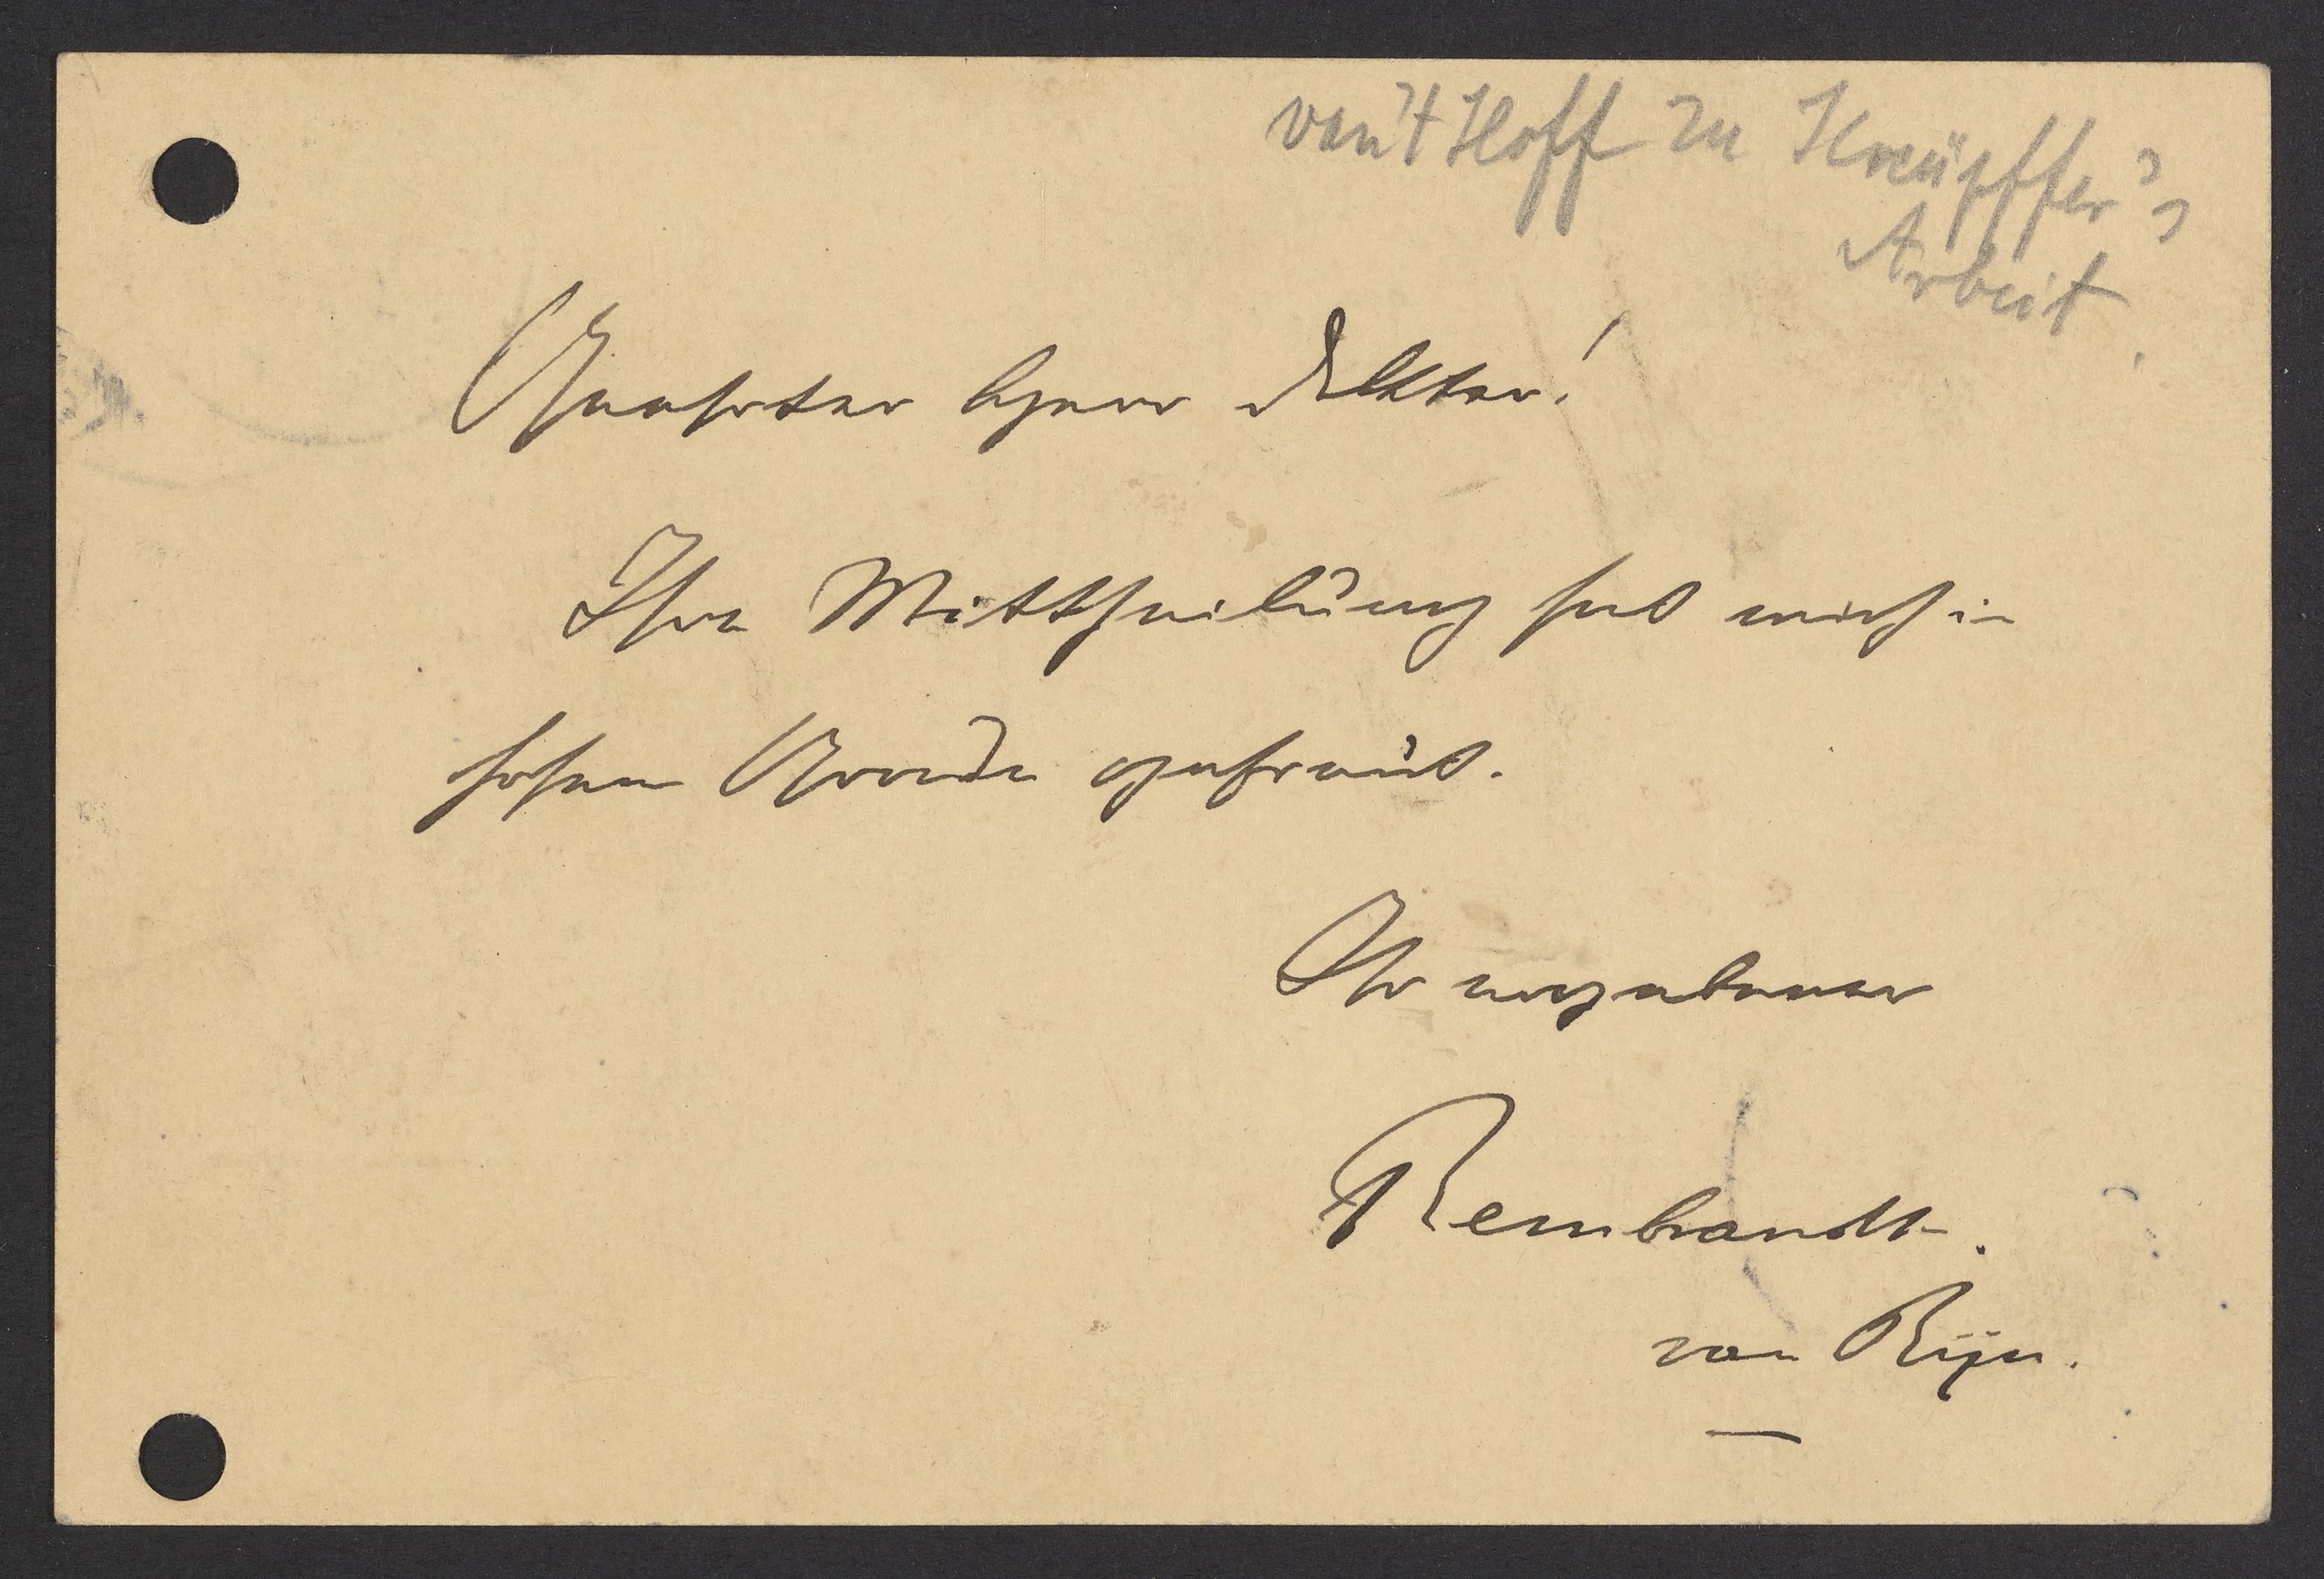 van't Hoff zu Kreüpffer's
Arbeit
Geehrter Herr Doktor!
Ihre Mittheilung hat mich in
hohem Grade gefreut.
Ihr ergebener
Rembrandt.
van Rijn.